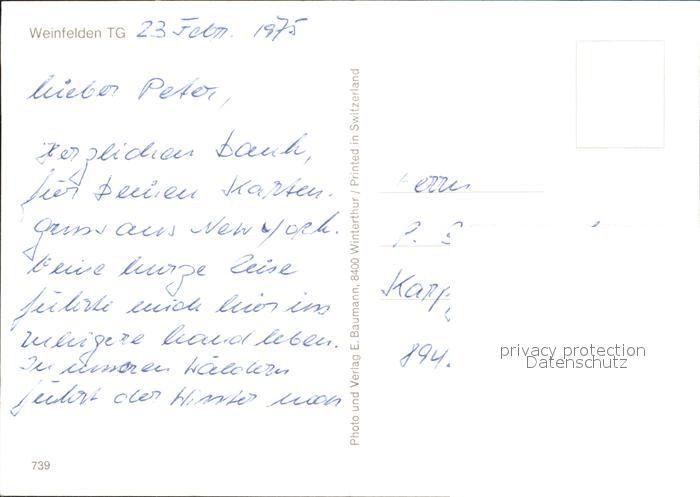 Weinfelden TG 23 Febr. 1975
Lieber Peter,
Herzlichen Dank,
für Deinen Karten-
gruss aus New York.
Meine kurze Reise
führte mich hier ins
ruhigere Landleben.
In unseren Wäldern
führt der Winter noch
739
Photo und Verlag E. Baumann, 8400 Winterthur / Printed in Switzerland
Herrn
P.
Kapp
894.
privacy protection
Datenschutz